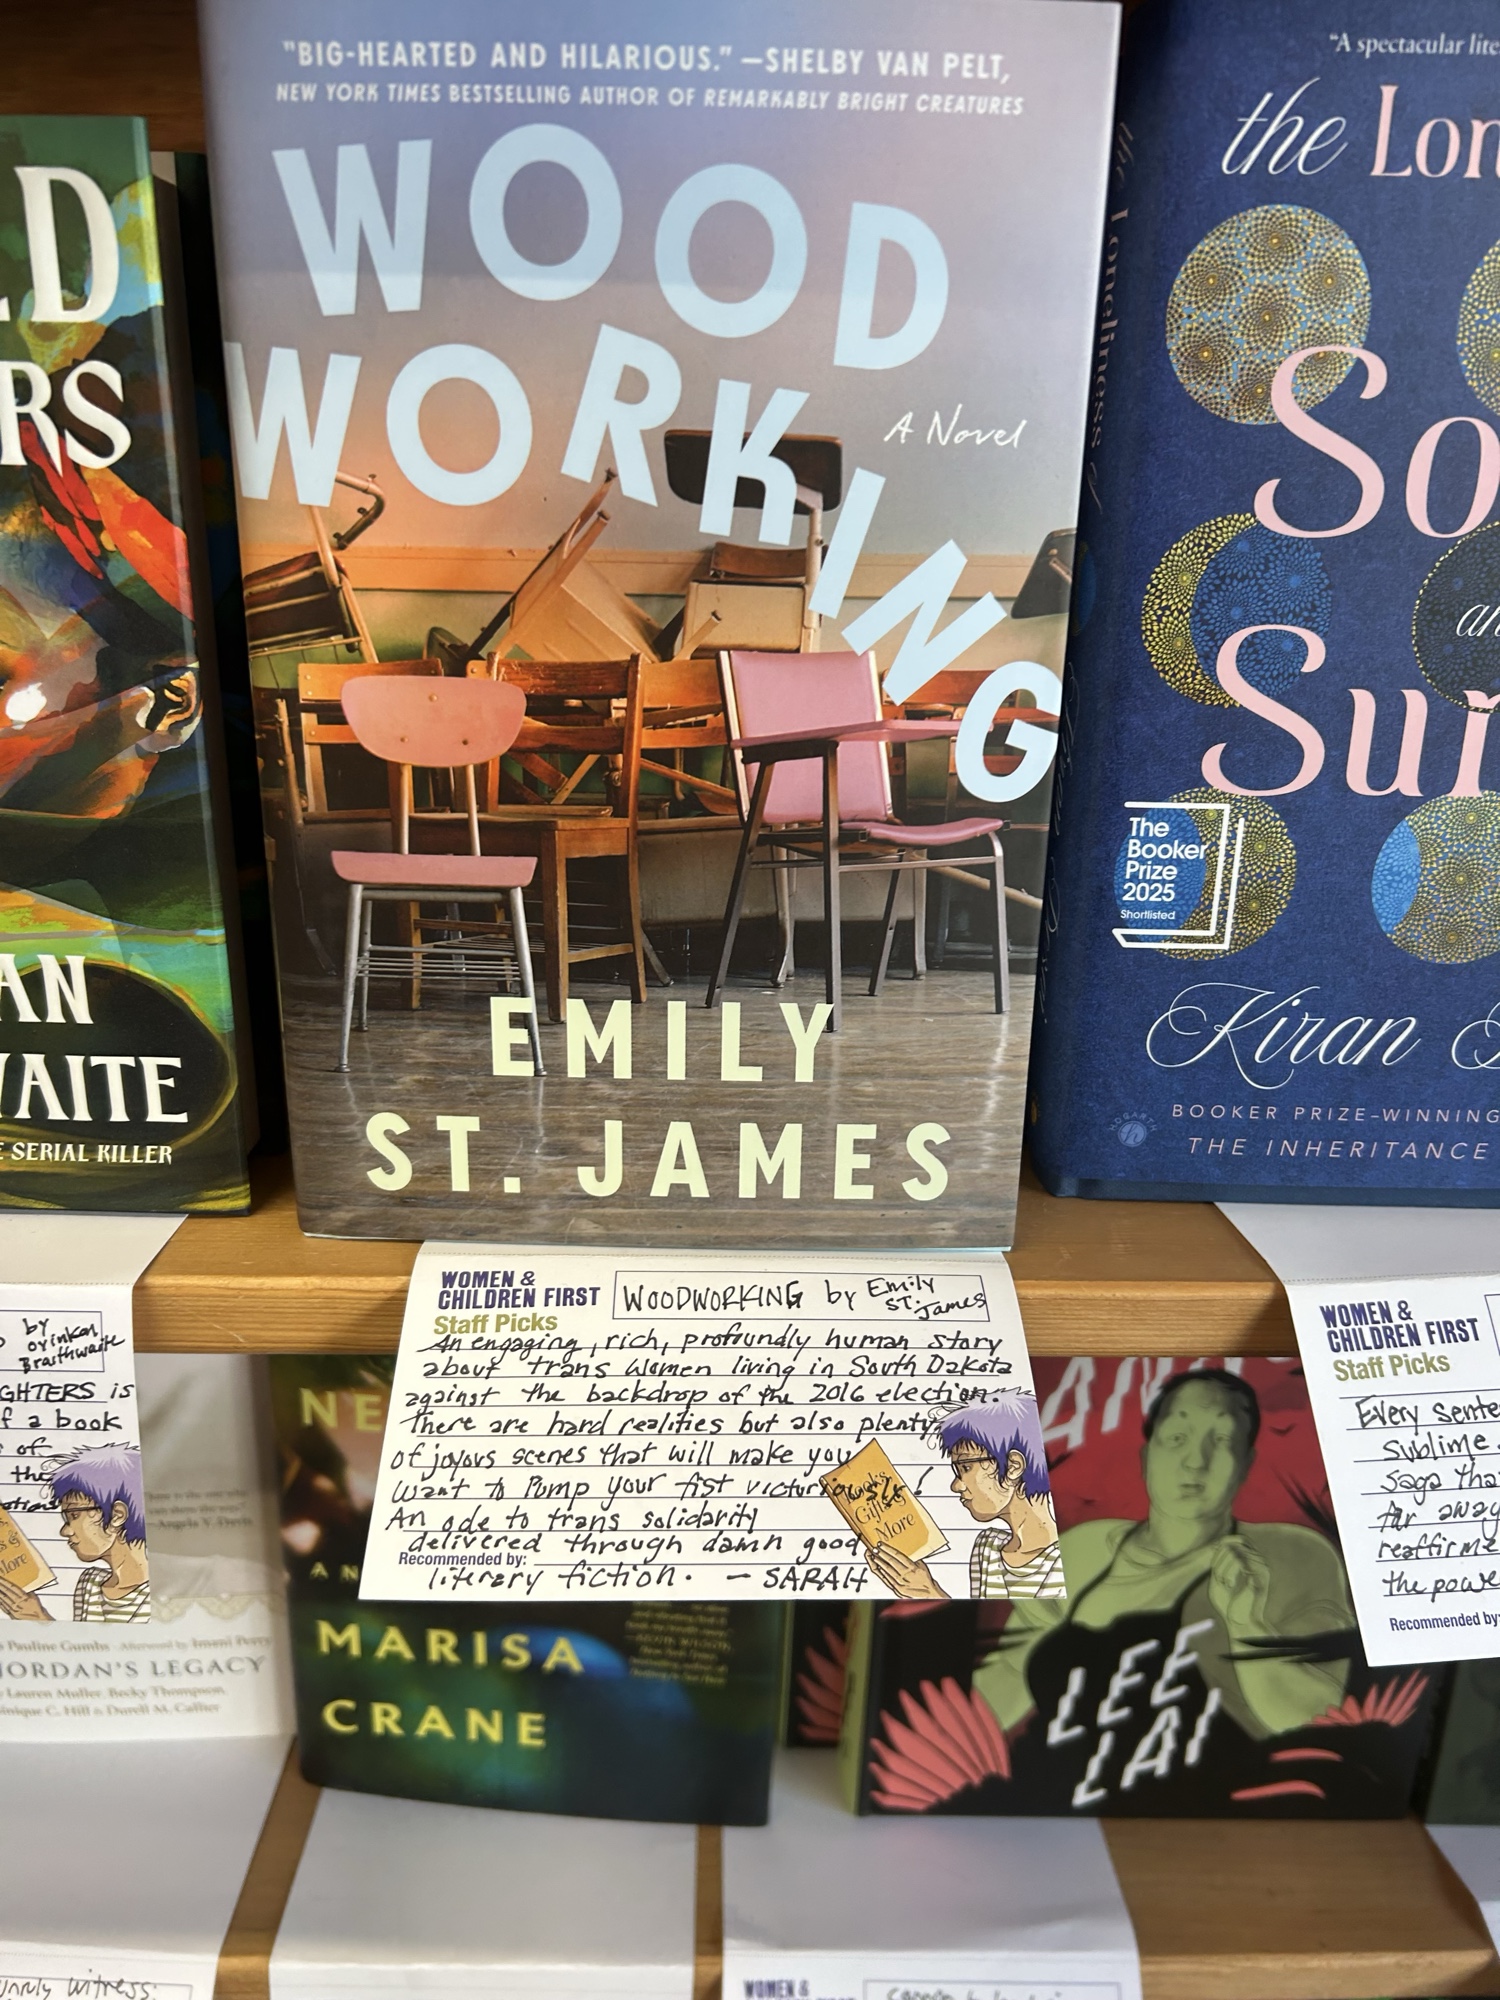 "BIG-HEARTED AND HILARIOUS." —SHELBY VAN PELT,
NEW YORK TIMES BESTSELLING AUTHOR OF REMARKABLY BRIGHT CREATURES
WOOD
WORKING
A Novel
EMILY
ST. JAMES
LD
RS
AN
WAITE
SERIAL KILLER
"A spectacular lite
the Lon
So
an
Sur
the Loneliness of
The
Booker
Prize
2025
Shortlisted
Kiran
HOGARTH
BOOKER PRIZE–WINNING
THE INHERITANCE
WOMEN &
CHILDREN FIRST
Staff Picks
WOODWORKING by Emily
St. James
An engaging, rich, profoundly human story
about trans women living in South Dakota
against the backdrop of the 2016 election.
There are hard realities but also plenty
of joyous scenes that will make you
want to pump your fist victoriously!
An ode to trans solidarity
delivered through damn good
Recommended by:
literary fiction. — SARAH
Gifts &
More
by
Oyinkan
Braithwaite
GHTERS is
f a book
of
the
More
WOMEN &
CHILDREN FIRST
Staff Picks
Every sente
sublime.
saga tha
far away
reaffirme
the powe
Recommended by:
—Angela Y. Davis
Pauline Gumbs · Afterword by Imani Perry
JORDAN'S LEGACY
Lauren Muller, Becky Thompson,
Dominique C. Hill & Durell M. Callier
NE
A N
MARISA
CRANE
LEE
LAI
unruly witness:
WOMEN &